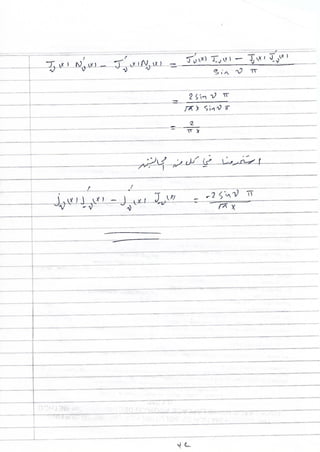 J_ν(x) N'_ν(x) - J'_ν(x) N_ν(x) = (J'_ν(x) J_-ν(x) - J_ν(x) J'_-ν(x)) / sin ν π
= 2 sin ν π / π x sin ν π
= 2 / π x
استخدمنا في كل من
J_ν(x) J'_-ν(x) - J'_ν(x) J_-ν(x) = -2 sin ν π / π x